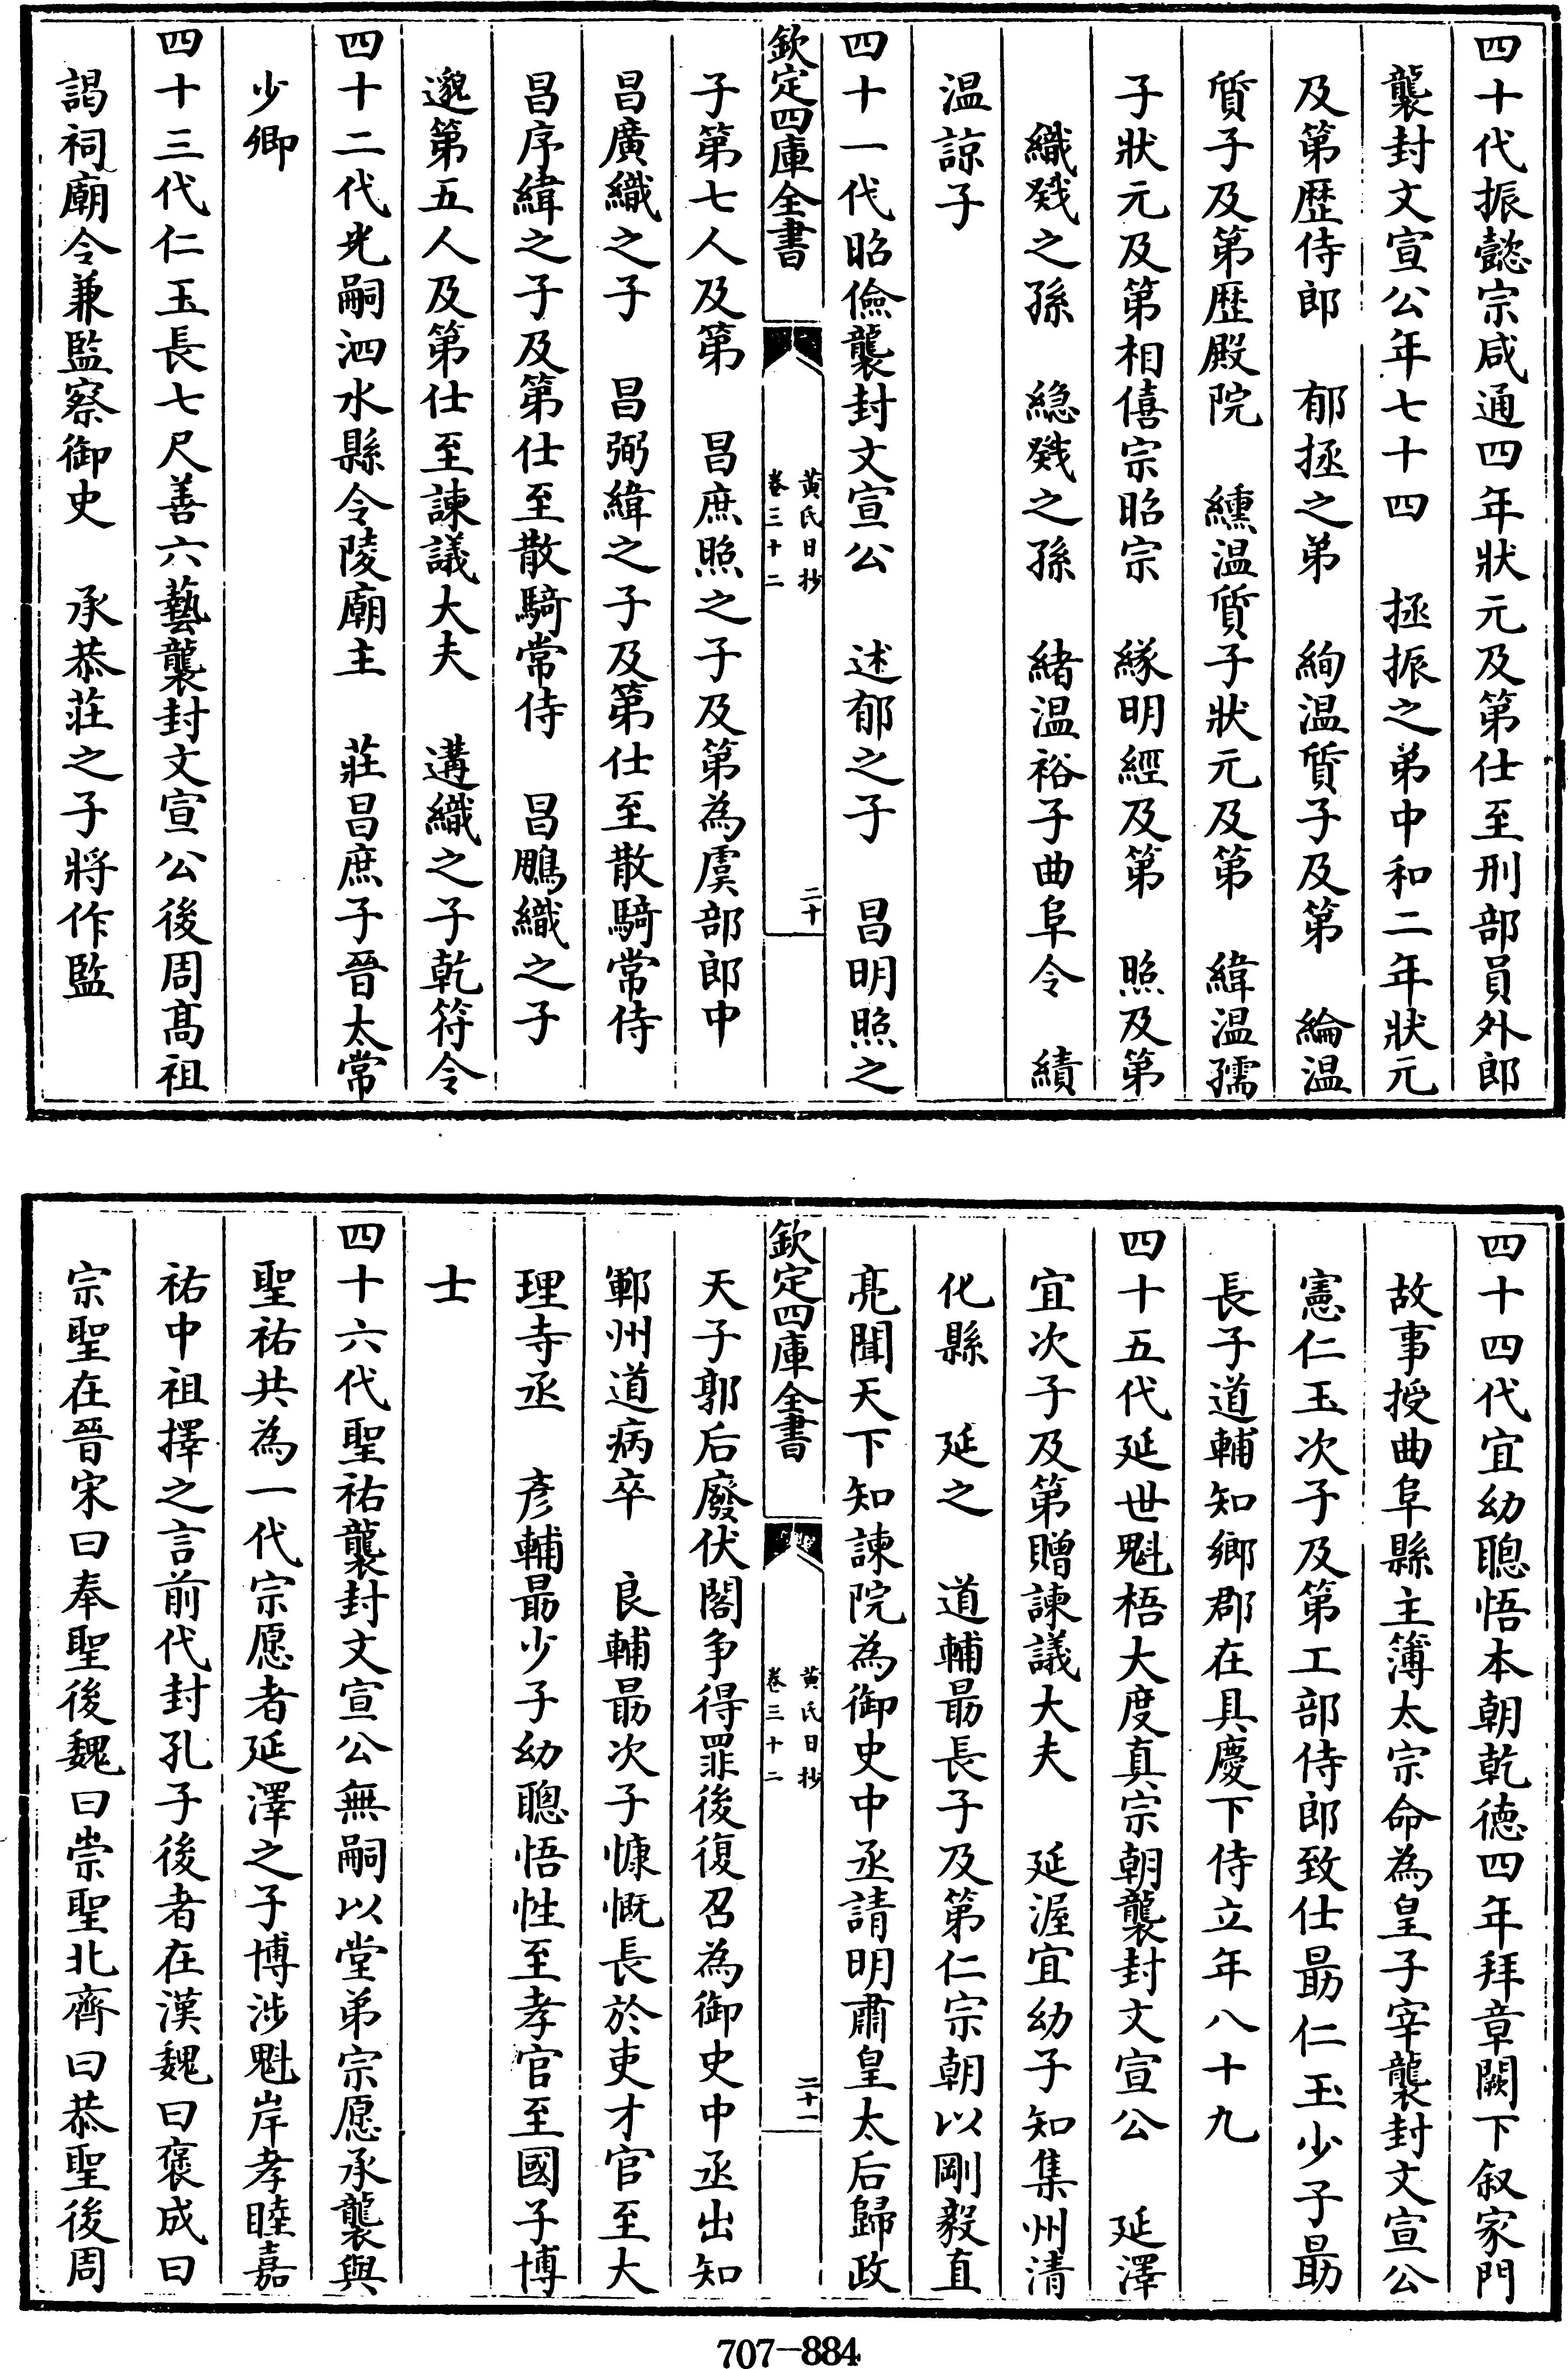 四十代振懿宗咸通四年狀元及第仕至刑部員外郎
襲封文宣公年七十四　拯振之弟中和二年狀元
及第歴侍郎　郁拯之弟　絢温質子及第　綸温
質子及第歴殿院　纁温質子狀元及第　緯温孺
子狀元及第相僖宗昭宗　緣明經及第　照及第
織戣之孫　緫戣之孫　緒温裕子曲阜令　績
温諒子
四十一代昭儉襲封文宣公　述郁之子　昌明照之
欽定四庫全書
黄氏日抄
卷三十二
二十
子第七人及第　昌庶照之子及第為虞部郎中
昌廣織之子　昌弼緯之子及第仕至散騎常侍
昌序緯之子及第仕至散騎常侍　昌鵬織之子
邈第五人及第仕至諫議大夫　遘織之子乾符令
四十二代光嗣泗水縣令陵廟主　莊昌庶子晉太常
少卿
四十三代仁玉長七尺善六藝襲封文宣公後周髙祖
謁祠廟令兼監察御史　承恭莊之子將作監
四十四代宜幼聰悟本朝乾徳四年拜章闕下叙家門
故事授曲阜縣主簿太宗命為皇子宰襲封文宣公
憲仁玉次子及第工部侍郎致仕勗仁玉少子勗
長子道輔知鄉郡在具慶下侍立年八十九
四十五代延世魁梧大度真宗朝襲封文宣公　延澤
宜次子及第贈諫議大夫　延渥宜幼子知集州清
化縣　延之　道輔勗長子及第仁宗朝以剛毅直
亮聞天下知諫院為御史中丞請明肅皇太后歸政
欽定四庫全書
黄氏日抄
卷三十二
二十一
天子郭后廢伏閤争得罪後復召為御史中丞出知
鄆州道病卒　良輔勗次子慷慨長於吏才官至大
理寺丞　彦輔勗少子幼聰悟性至孝官至國子博
士
四十六代聖祐襲封文宣公無嗣以堂弟宗愿承襲與
聖祐共為一代宗愿者延澤之子博涉魁岸孝睦嘉
祐中祖擇之言前代封孔子後者在漢魏曰褒成曰
宗聖在晉宋曰奉聖後魏曰崇聖北齊曰恭聖後周
707-884